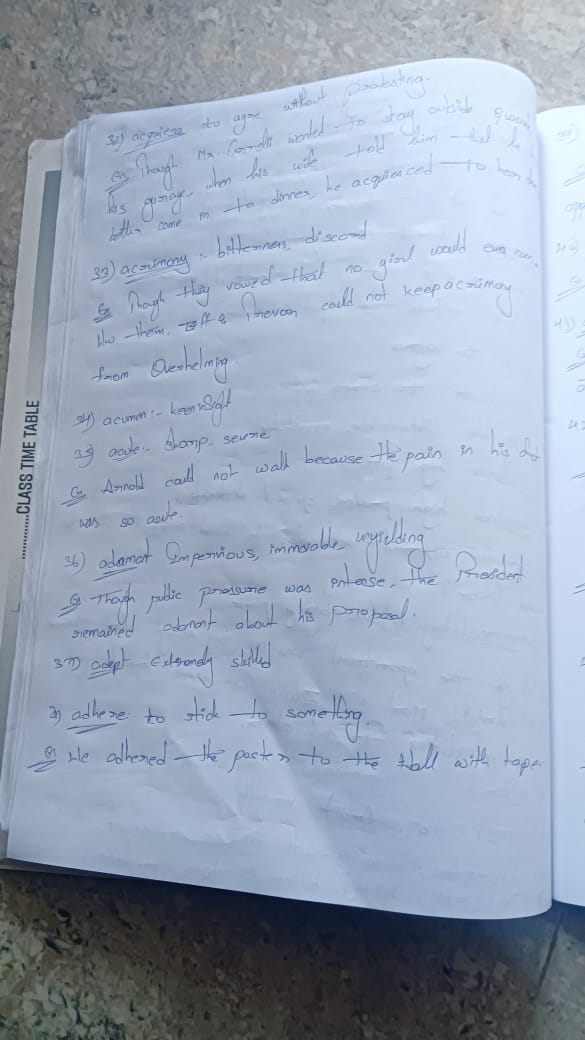 32) acquiesce to agree without protesting.
Eg Though Mr. wanted to stay outside &
his garage, when his wife told him that he
come in to dinner, he acquiesced to her
33) acrimony :- bitterness, discord
Eg Though they vowed that no girl would ever come
b/w them, & Trevor could not keep acrimony
from Overhelming
34) acumen :- keen insight
35) acute:- sharp, severe
Eg Arnold could not walk because the pain in his
was so acute.
36) adamant Impervious, immovable, unyielding
Eg Though public pressure was intense, the President
remained about his proposal.
37) adept Extremely skilled
adhere: to stick to something.
Eg We adhered the poster to the Wall with tape.
.............CLASS TIME TABLE